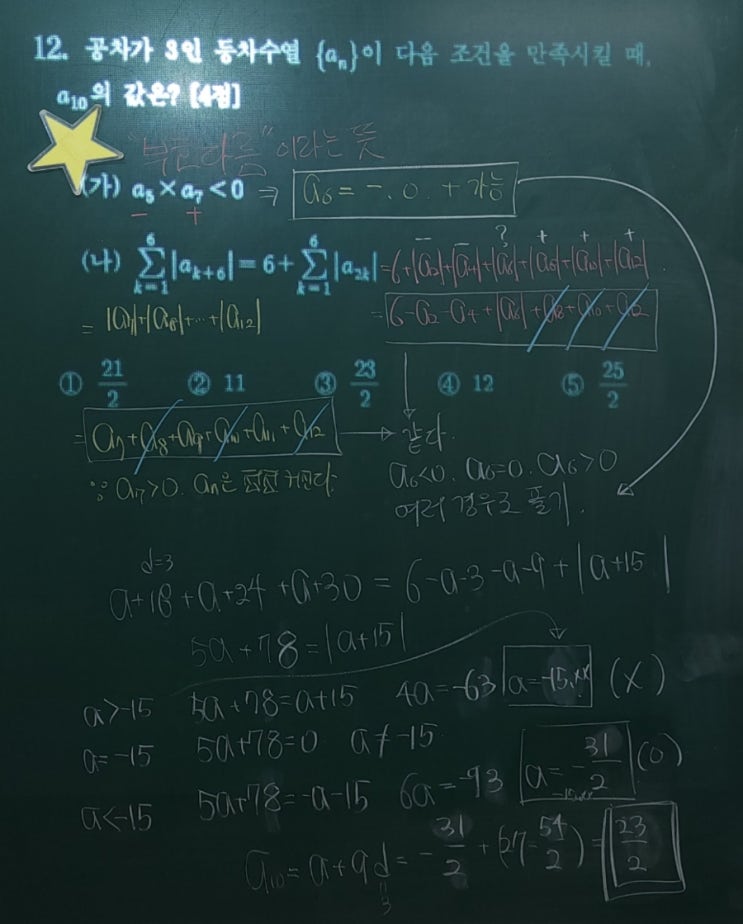 12. 공차가 3인 등차수열 {aₙ}이 다음 조건을 만족시킬 때,
a₁₀의 값은? [4점]
"부호다름"이라는 뜻
(가) a₅ × a₇ < 0 ⇒ a₆ = -, 0, + 가능
- +
- - ? + + +
(나) ∑_{k=1}^{6} |a_{k+6}| = 6 + ∑_{k=1}^{6} |a_{2k}| = 6+|a₂|+|a₄|+|a₆|+|a₈|+|a₁₀|+|a₁₂|
= |a₇|+|a₈|+…+|a₁₂|
= 6-a₂-a₄+|a₆|+a₈+a₁₀+a₁₂
① 21/2 ② 11 ③ 23/2 ④ 12 ⑤ 25/2
= a₇+a₈+a₉+a₁₀+a₁₁+a₁₂ → 같다.
∵ a₇>0. aₙ은 점점 커진다.
a₆<0, a₆=0, a₆>0
여러 경우로 풀기.
d=3
a+18+a+24+a+30 = 6-a-3-a-9+|a+15|
5a+78=|a+15|
a>-15 5a+78=a+15 4a=-63 a=-15.xx (X)
a=-15 5a+78=0 a≠-15
a<-15 5a+78=-a-15 6a=-93 a=-31/2 (O)
-15.xx
a₁₀=a+9d=-31/2+(27=54/2)=23/2
3